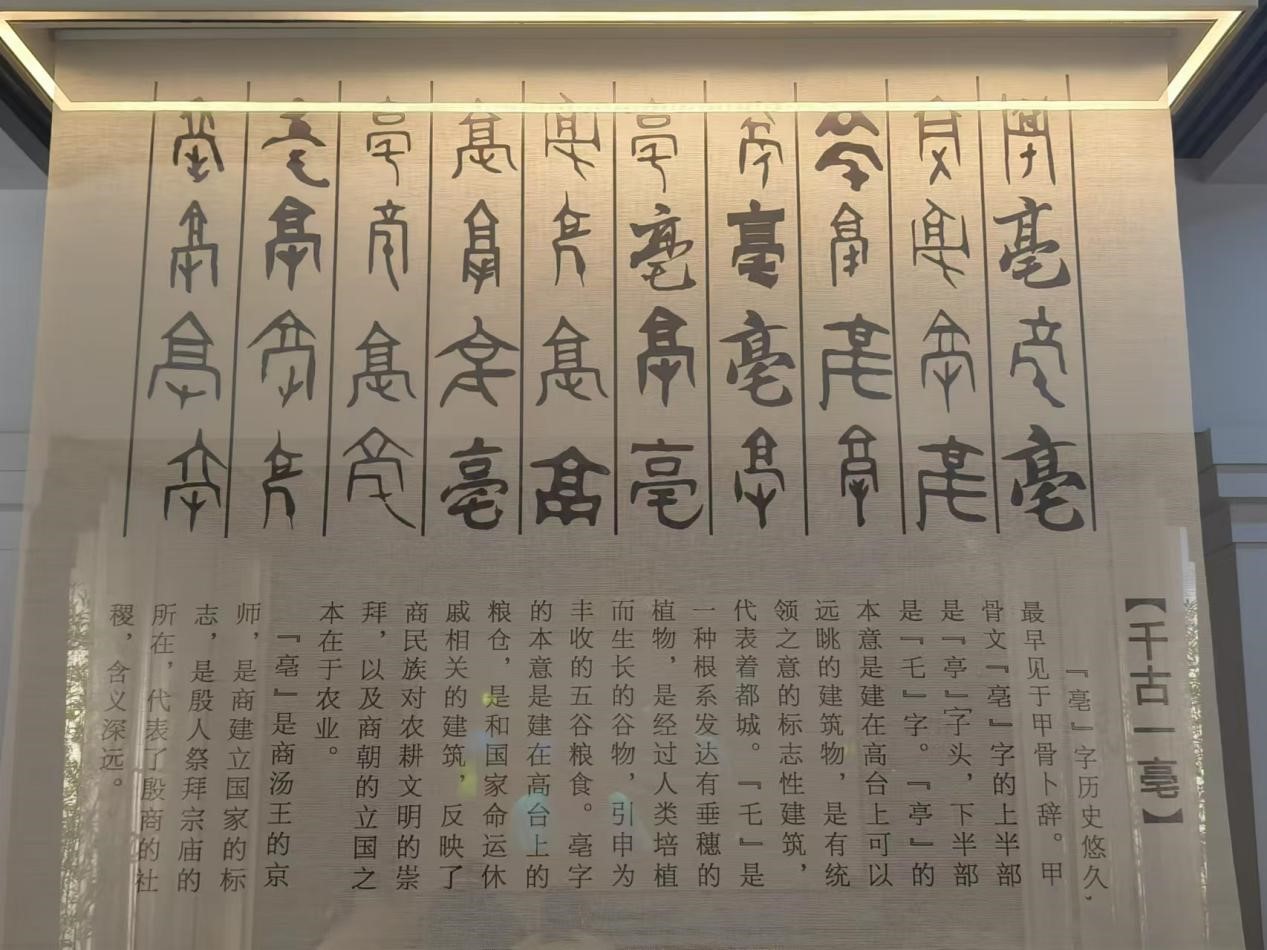 【千古一亳】
『亳』字历史悠久，
最早见于甲骨卜辞。甲
骨文『亳』字的上半部
是『亭』字头，下半部
是『乇』字。『亭』的
本意是建在高台上可以
远眺的建筑物，是有统
领之意的标志性建筑，
代表着都城。『乇』是
一种根系发达有垂穗的
植物，是经过人类培植
而生长的谷物，引申为
丰收的五谷粮食。亳字
的本意是建在高台上的
粮仓，是和国家命运休
戚相关的建筑，反映了
商民族对农耕文明的崇
拜，以及商朝的立国之
本在于农业。
『亳』是商汤王的京
师，是商建立国家的标
志，是殷人祭拜宗庙的
所在，代表了殷商的社
稷，含义深远。